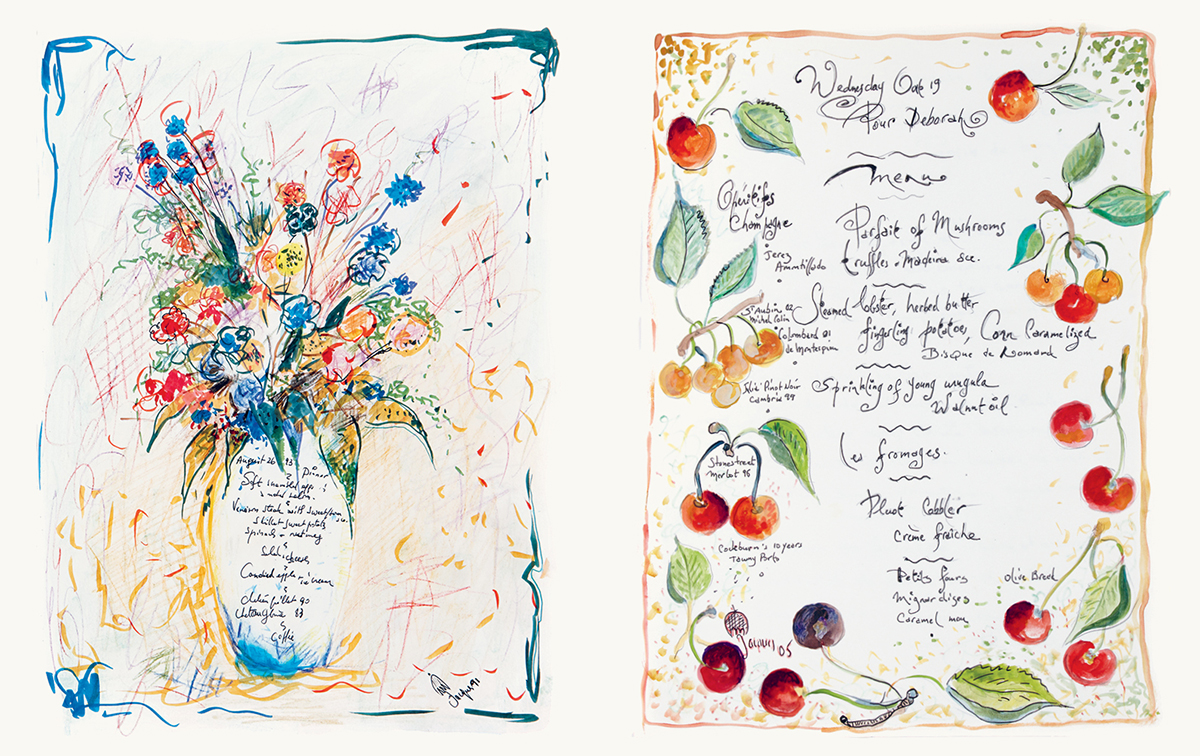 August 26 93
Dinner
Soft scrambled
Venison steak with
Skillet sweet potato
Spinach - nutmeg
&
Salad cheeses
&
Candied apple - ice cream
&
90
83
&
Coffee
Jacques
Wednesday Oct 19
Pour Deborah
Menu
Apéritifs
Champagne
Jerez
Amontillado
Parfait of Mushrooms
truffles - Madeira sce.
St Aubin 02
Michel Colin
Colombard 01
de Montespan
Steamed lobster, herbed butter
fingerling potatoes, Corn Caramelized
Bisque de Homard
Pinot Noir
Cambria 99
Sprinkling of young arugula
Walnut oil
Stonestreet
Merlot 96
les fromages.
Cockburn's 10 years
Tawny Porto
Pluot Cobbler
Crème fraîche
Petits fours
Mignardises
Caramel mou
Olive Bread
Jacques 05